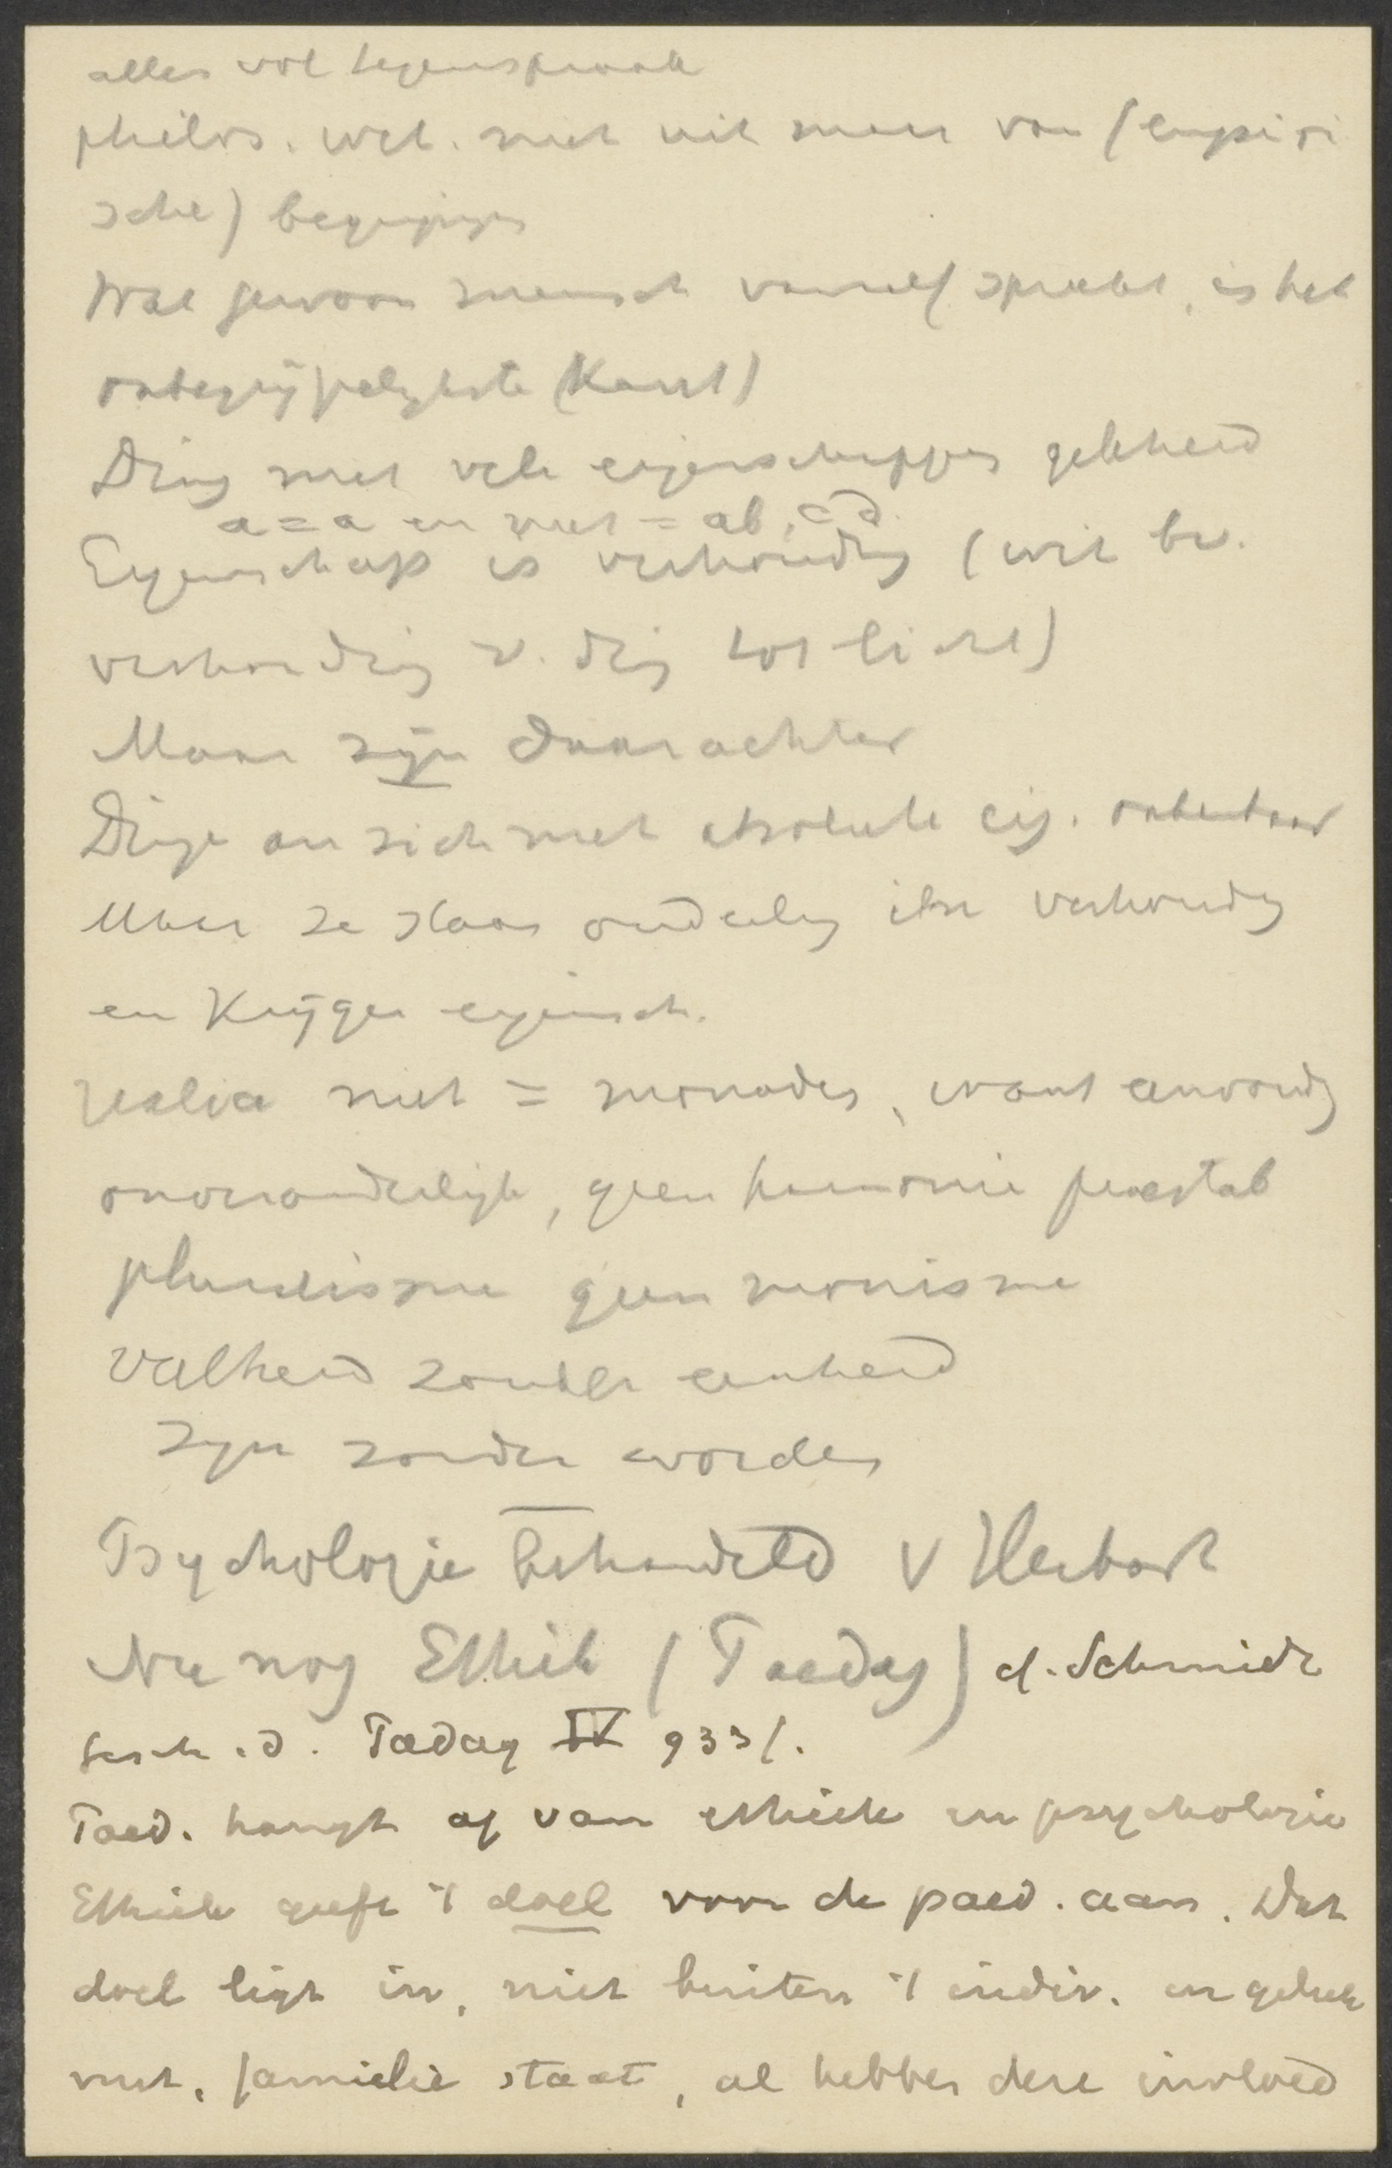 alles vol tegenspraak
philos. wet. niet uit maar van (empiri
sche) begrippen
Wat gewoon mensch vanself spreekt, is het
onbegrijpelijkste (Kant)
Ding met vele eigenschappen gekheid
a = a en niet = ab, cd
Eigenschap is verhouding (wit bv.
verhouding v. ding tot licht)
Maar zijn daarachter
Dinge an sich met absolute eig. onkenbaar
Maar ze staan onderling in verhouding
en krijgen eigensch.
realia niet = monaden, want eenvoudig
onveranderlijk, geen harmonie praestab
pluralisme geen monisme
veelheid zonder eenheid
zijn zonder worden
Psychologie behandeld v Herbart
Nu nog Ethiek (Paedag) cf. Schmidt
Gesch. d. Paedag IV 933f.
Paed. hangt af van ethiek en psychologie
Ethiek geeft 't doel voor de paed. aan. Dat
doel ligt in, niet buiten 't indiv. en
familie staat, al hebben deze invloed